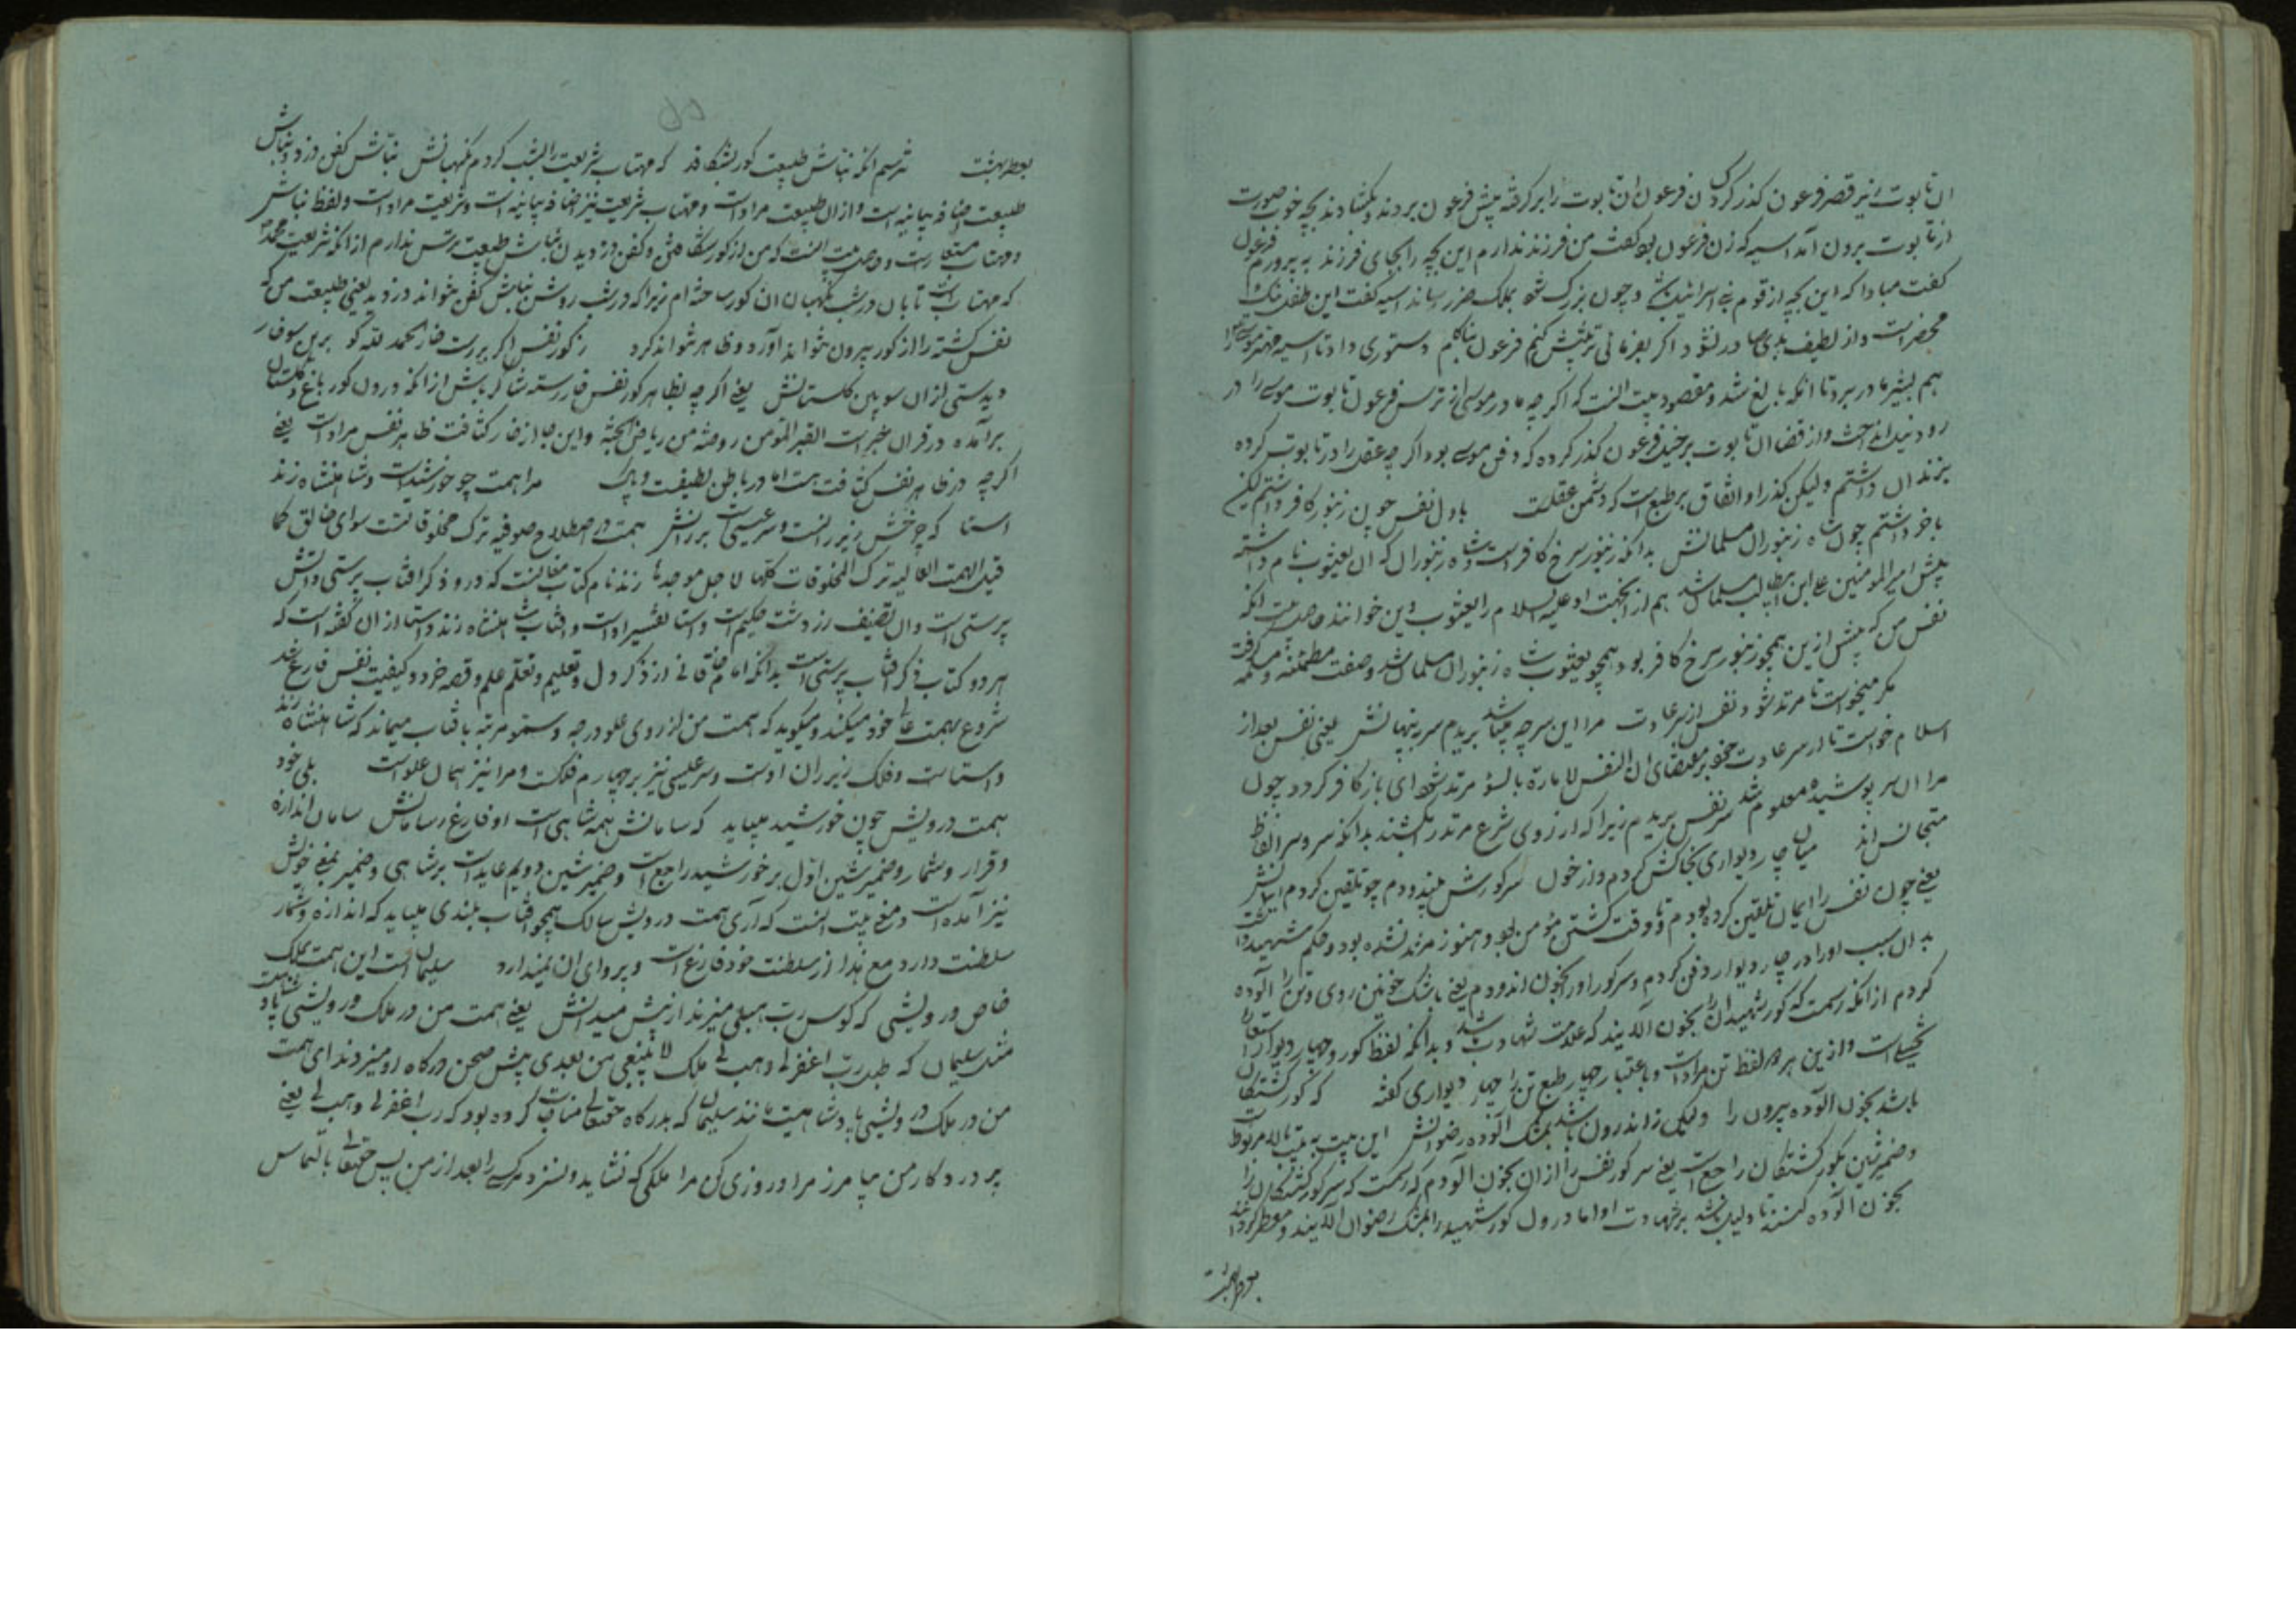 ان تابوت زیر قصر فرعون گذر کرد کسان فرعون ان تابوت را برگرفته پیش فرعون بردند و بکشادند بچه خوب صورت
از تابوت برون آمد اسیه که زن فرعون بود گفت من فرزند ندارم این بچه را بجای فرزند به پرورم فرعون
گفت مبادا که این بچه از قوم بنی اسرائیل باشد و چون بزرگ شود بملک ضرر رساند اسیه گفت این طفل
محض است و از لطیف بدی صادر نشود اگر بفرمائی تربیتش کنم فرعون دستوری داد تا اسیه مهتر موسی را
هم بشیر مادر پرد تا آنکه بالغ شد و مقصود بیت انست که اگرچه مادر موسی از ترس فرعون تابوت موسی را در
رود نیل انداخت و از قضا ان تابوت بر فرعون گذر کرده که دشمن موسی بود اگرچه عقل را در تابوت کرده
بزندان داشتم ولیکن گذر او اتفاق بر طبع است که دشمن عقلست باول نفس چون زنبور کافر داشتم لیکن
باخر داشتم چون شاه زنبوران مسلمانش بدانکه زنبور سرخ کافر است و شاه زنبوران که ان یعسوب نام داشته
پیش امیر المومنین علی ابن ابی طالب مسلمان شد هم از انجهت او علیه السلام را یعسوب دین خوانند حاصل بیت انکه
نفس من که پیش ازین همچو زنبور سرخ کافر بود همچو یعسوب شاه زنبوران مسلمان شد و صفت مطمئنه و ملهمه گرفت
مگر میخواست تا مرتد شود نفس از سر عادت مرا این سر چو پیدا شد بریدم سر به پنهانش یعنی نفس بعد از
اسلام خواست تا از سر عادت خود بر مقتضای ان النفس لامارة بالسوء مرتد شود ای باز کافر گردد چون
مرا ان سر پوشیده معلوم شد سر نفس بریدم زیرا که از روی شرع مرتد را بکشند بدانکه سر و سر الفاظ
متجانس اند میان چار دیواری بخاکش کردم و از خون سر گورش بیندودم چو تلقین کردم ایمانش
یعنی چون نفس را ایمان تلقین کرده بودم تا وقت کشتن مؤمن بود و هنوز مرتد نشده بود و حکم شهید داشت
بدان سبب او را در چار دیوار دفن کردم و سر گور او را بخون اندودم یعنی باشک خونین روی و تن را آلوده
کردم از انکه رسمست که گور شهیدان را بخون آلایند که علامت شهادت باشد و بدانکه لفظ گور و چهار دیوار استعاره
تخییلی است و ازین هر دو لفظ تن مراد است و باعتبار چهار طبع تن را چهار دیواری گفته که گور کشتگان
باشد بخون آلوده بیرون را ولیکن ز اندرون باشد بمشک آلوده رضوانش این بیت به بیت بالا مربوط است
و ضمیر شین بگور کشتگان راجع است یعنی سر گور نفس را ازان بخون آلودم که رسمست که سر گور کشتگان را
بخون آلوده کنند تا دلیل باشد بر شهادت او اما درون گور شهید را بمشک رضوان آلایند و معطر گردانند
بعطر بهشت
بعطر بهشت نترسم انکه نباش طبیعت گور بشکافد که مهتاب شریعت را بشب کردم نگهبانش نباش کفن دزد و نباش
طبیعت اضافه بیانیه است و ازان طبیعت مراد است و مهتاب شریعت نیز اضافه بیانیه است و شریعت مراد است و لفظ نباش
و مهتاب مستعار است و حاصل بیت انست که من از گور شکافتن و کفن دزدیدن نباش طبیعت ترس ندارم از انکه شریعت محمد
که مهتاب است تابان در شب نگهبان ان گور ساخته ام زیرا که در شب روشن نباش کفن نتواند دزدید یعنی طبیعت من که
نفس کشته را از گور بیرون نتواند آورد و ظاهر نتواند کرد ز گور نفس اگر بررست خار الحمد لله گو برین سو خار
دیدستی ازان سو بین گلستانش یعنی اگرچه بظاهر گور نفس خار رسته شاکر باش از انکه درون گور باغ و گلستان
برآمده در قران خبر است القبر المؤمن روضة من ریاض الجنة و این جا از خار کثافت ظاهر نفس مراد است یعنی
اگرچه در ظاهر نفس کثافت هست اما در باطن لطیفست و پاک مرا همت چو خورشید است و شاهنشاه زند
استا که چرخش زیر رانست و سر عیسی است بر رانش همت در اصطلاح صوفیه ترک مخلوقاتست سوای خالق کما
قیل الهمت العالیه ترک المخلوقات کلها لاجل موجدها زند نام کتاب مغانست که درو ذکر افتاب پرستی و آتش
پرستی است و ان تصنیف زردشت حکیم است و استا تفسیر اوست و افتاب را شاهنشاه زند و استا ازان گفته است که
هر دو کتاب ذکر افتاب پرستی است بدانکه امام خاقانی از ذکر دل و تعلیم و تعلم علم و قصه خرد و کیفیت نفس فارغ شد
شروع بهمت عالی خود میکند و میگوید که همت من از روی علو درجه و سمو مرتبه بافتاب میماند که شاهنشاه زند
و استاست و فلک زیر ران اوست و سر عیسی نیز بر چهارم فلکست و مرا نیز همان علو است بلی خود
همت درویش چون خورشید میباید که سامانش همه شاهی است او فارغ ز سامانش سامان اندازه
و قرار و شمار و ضمیر شین اول بر خورشید راجع است و ضمیر شین دویم عاید است بر شاهی و ضمیر بمعنی خویش
نیز آمده است و معنی بیت انست که آری همت درویش سالک همچو افتاب بلندی میباید که اندازه و شمار
سلطنت دارد مع هذا از سلطنت خود فارغ است و پروای ان نمیدارد سلیمان است این همت بملک
خاص درویشی که کوس رب هبلی میزند از پیش میدانش یعنی همت من در ملک درویشی پادشاهیست
مثل سلیمان که طبل رب اغفرلی وهب لی ملک لا ینبغی من بعدی پیش صحن درگاه او میزدند ای همت
من در ملک درویشی پادشاهیست مانند سلیمان که بدرگاه حقتعالی مناجات کرده بود که رب اغفرلی وهب لی یعنی
پروردگار من بیامرز مرا و روزی کن مرا ملکی که نشاید و نسزد مر کسی را بعد از من پس حقتعالی بالتماس